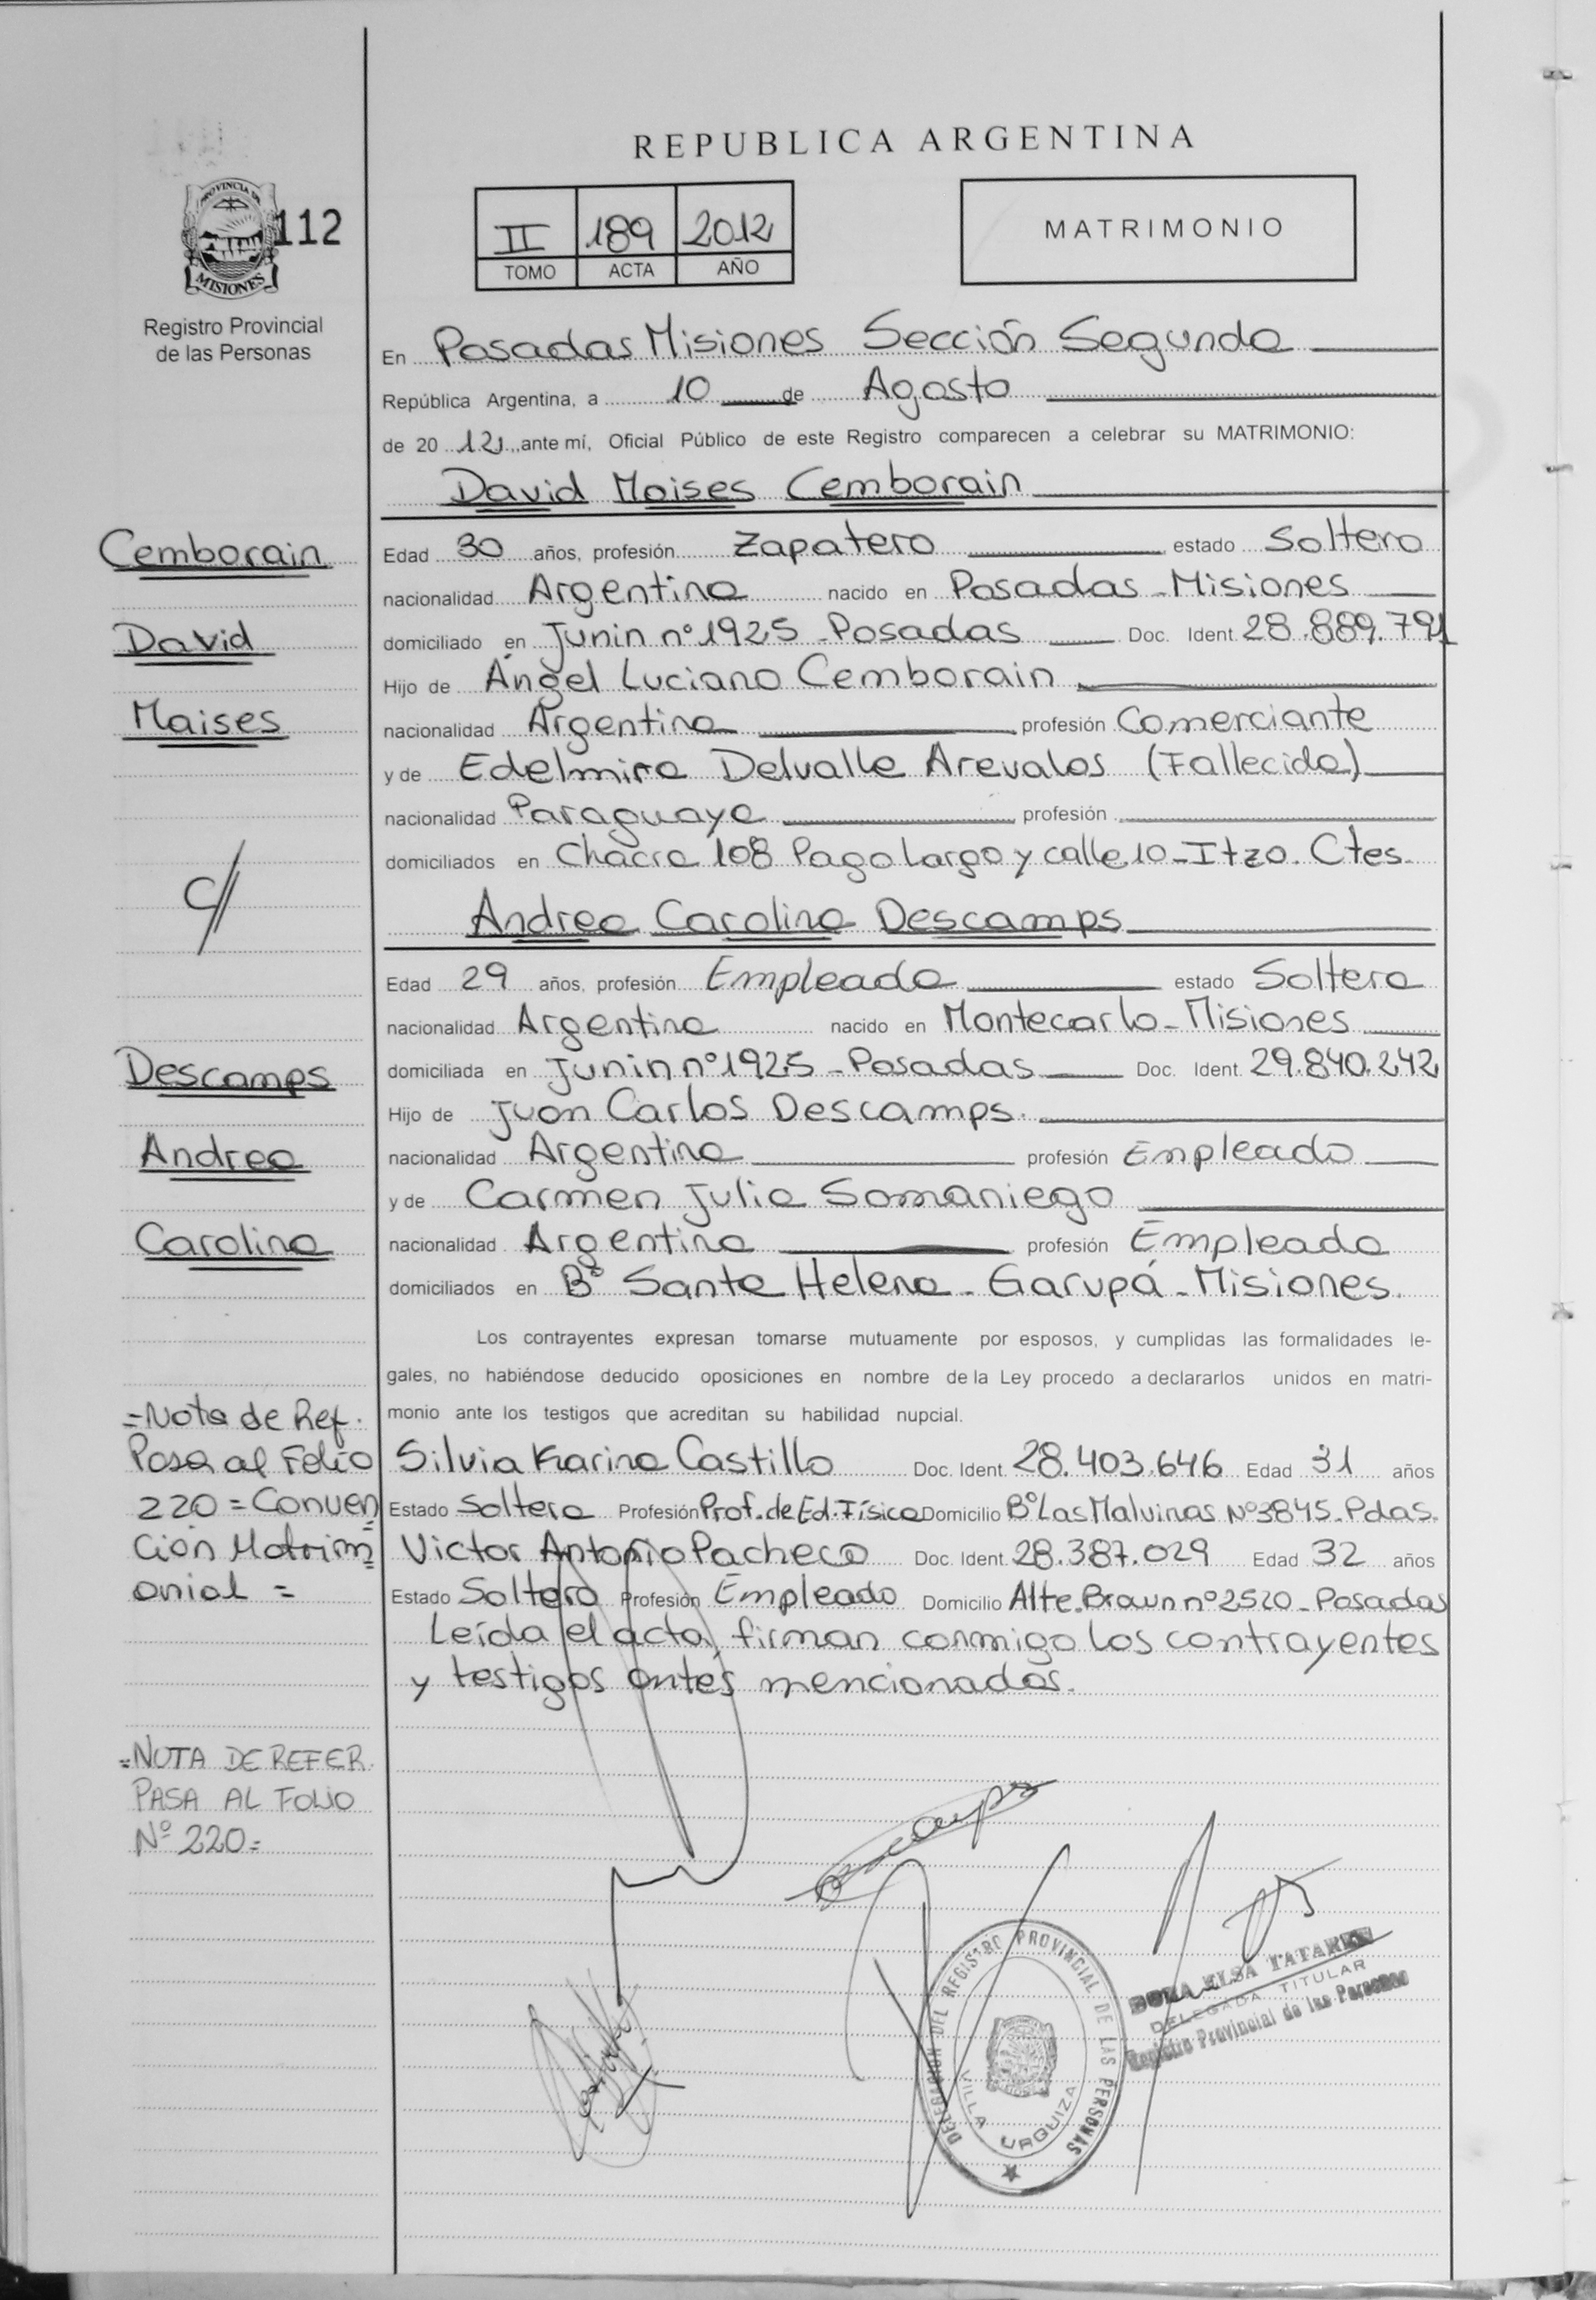 REPUBLICA ARGENTINA
PROVINCIA DE
MISIONES
112
Registro Provincial
de las Personas
II 189 2012
TOMO ACTA AÑO
MATRIMONIO
En Posadas Misiones Sección Segunda
República Argentina, a 10 de Agosto
de 20 12, ante mí, Oficial Público de este Registro comparecen a celebrar su MATRIMONIO:
David Moises Cemborain
Cemborain
David
Moises
C//
Edad 30 años, profesión Zapatero estado Soltero
nacionalidad Argentina nacido en Posadas - Misiones
domiciliado en Junin nº 1925 - Posadas Doc. Ident. 28.889.791
Hijo de Ángel Luciano Cemborain
nacionalidad Argentina profesión Comerciante
y de Edelmira Delvalle Arevalos (Fallecida)
nacionalidad Paraguaya profesión
domiciliados en Chacra 108 Pago Largo y calle 10 - Itzo. Ctes.
Andrea Carolina Descamps
Descamps
Andrea
Carolina
Edad 29 años, profesión Empleada estado Soltera
nacionalidad Argentina nacido en Montecarlo - Misiones
domiciliada en Junin nº 1925 - Posadas Doc. Ident. 29.840.242
Hijo de Juan Carlos Descamps.
nacionalidad Argentina profesión Empleado
y de Carmen Julia Samaniego
nacionalidad Argentina profesión Empleada
domiciliados en Bº Santa Helena - Garupá - Misiones.
Los contrayentes expresan tomarse mutuamente por esposos, y cumplidas las formalidades le-
gales, no habiéndose deducido oposiciones en nombre de la Ley procedo a declararlos unidos en matri-
monio ante los testigos que acreditan su habilidad nupcial.
=Nota de Ref.
Pasa al Folio
220 = Conven
ción Matrim=
onial =
Silvia Karina Castillo Doc. Ident. 28.403.646 Edad 31 años
Estado Soltera Profesión Prof. de Ed. Física Domicilio Bº Las Malvinas Nº 3845 - Pdas.
Victor Antonio Pacheco Doc. Ident. 28.387.029 Edad 32 años
Estado Soltero Profesión Empleado Domicilio Alte. Brown nº 2520 - Posadas
Leída el acta, firman conmigo los contrayentes
y testigos antes mencionados.
=NOTA DE REFER.
PASA AL FOLIO
Nº 220=
DELEGACION DEL REGISTRO PROVINCIAL DE LAS PERSONAS
VILLA URQUIZA
ELSA
DELEGADA TITULAR
Registro Provincial de las Personas